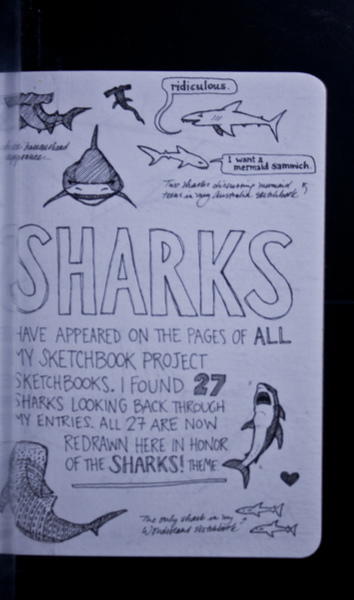 ridiculous.
I want a
mermaid sammich.
Two sharks discussing mermaid
in my Australia sketchbook
SHARKS
HAVE APPEARED ON THE PAGES OF ALL
MY SKETCHBOOK PROJECT
SKETCHBOOKS. I FOUND 27
SHARKS LOOKING BACK THROUGH
MY ENTRIES. ALL 27 ARE NOW
REDRAWN HERE IN HONOR
OF THE SHARKS! THEME
The only shark in my
Wonderland sketchbook